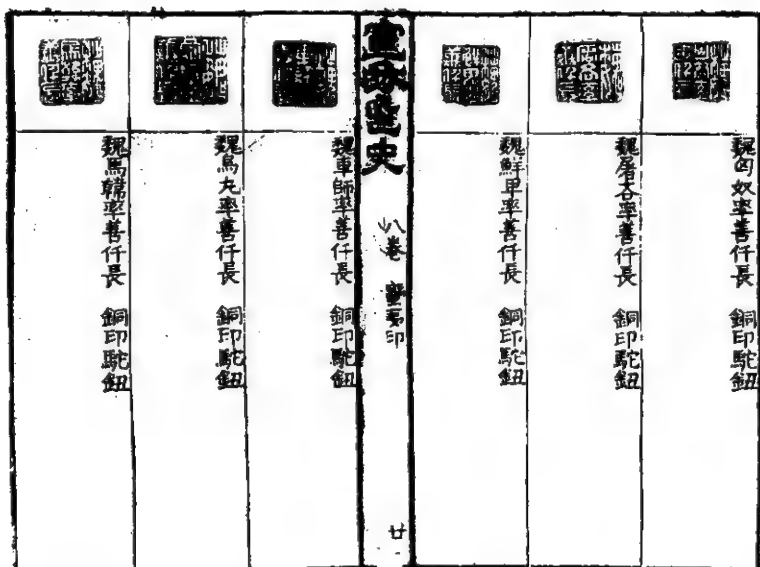 魏匈奴率善仟長 銅印駝鈕
魏屠各率善仟長 銅印駝鈕
魏鮮卑率善仟長 銅印駝鈕
八卷 蠻夷印 廿
魏車師率善仟長 銅印駝鈕
魏烏丸率善仟長 銅印駝鈕
魏馬韓率善仟長 銅印駝鈕